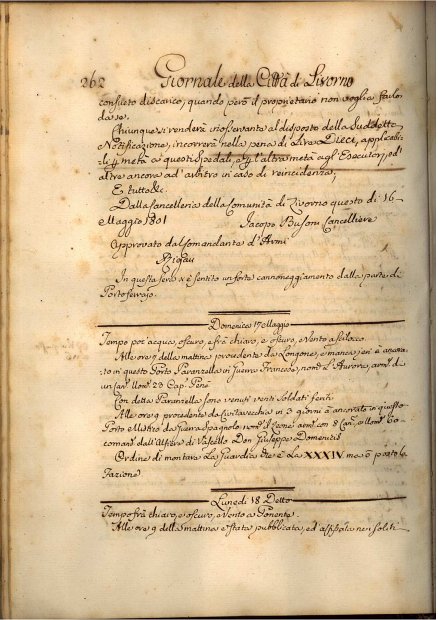 262 Giornale della Città di Livorno
consueto discarico, quando però il proprietario non voglia farlo
da se.
Chiunque si renderà inosservante al disposto della Suddetta
Notificazione, incorrerà nella pena di Lire Dieci, applicabi-
li p metà a questi Spedali, e p l'altra metà agl' Esecutori, ed
altre ancora ad arbitrio in caso di reincidenza;
E tutto &c.
Dalla Cancelleria della Comunità di Livorno questo dì 16
Maggio 1801
Jacopo Busoni Cancelliere
Approvato dal Comandante d'Armi
Rigau
In questa sera s'è sentito un forte cannoneggiamento dalla parte di
Portoferrajo.
Domenica 17 Maggio
Tempo per acqua, oscuro, e frà chiaro, e oscuro, e Vento a Scilocco.
Alle ore 7 della mattina procedente da Longone, e manca jeri è ancora-
to in questo Porto Paranzella in Guerra Francese, nom.ª L'Aurora, arm. di
un Can. e Uom. 23 Cap. Pene
Con detta Paranzella sono venuti venti Soldati feriti
Alle ore 9 procedente da Civitavecchia in 3 giorni è ancorato in questo
Porto Mistico da Guerra Spagnolo nom. il arm. con 8 Can., e Uom. 60
comand. dall'Alfiere di Vascello Don Giuseppe Domenris
Ordine di montare La Guardia che è La XXXIV mezza porto la
Fazione
Lunedì 18 Detto
Tempo frà chiaro, e oscuro, e Vento a Ponente.
Alle ore 9 della mattina è stata pubblicata, ed affissa nei soliti